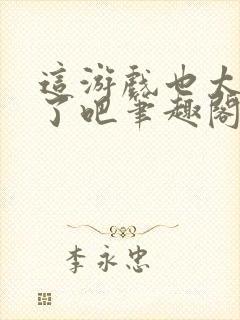 這游戲也太
了吧筆趣閣
李永忠